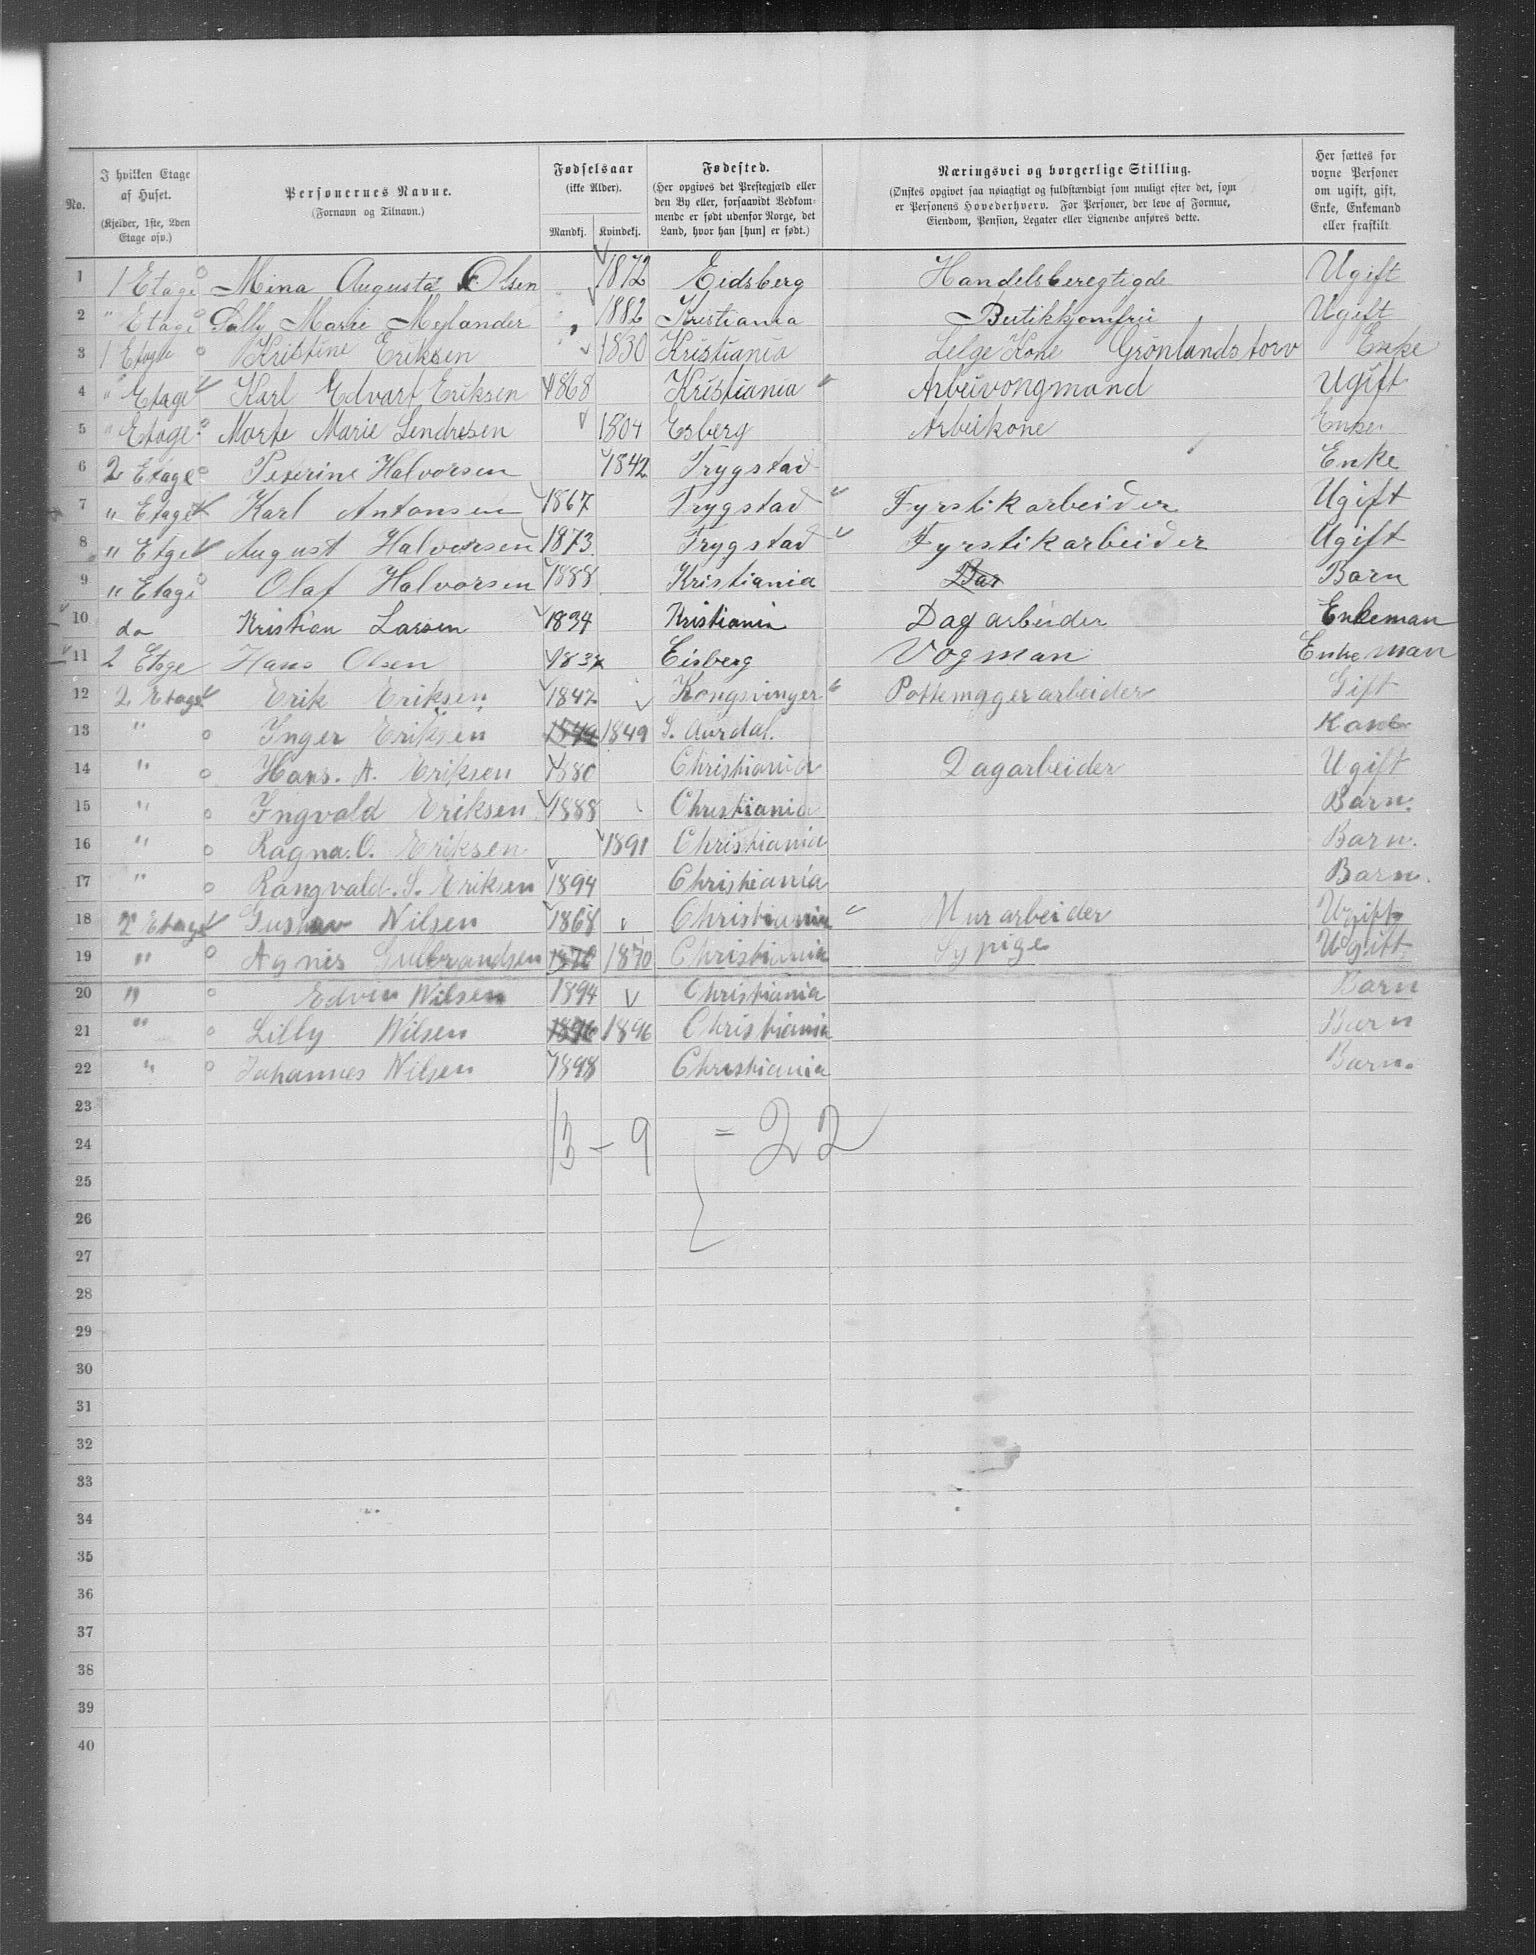 No. | I hvilken Etage af Huset. (Kjelder, 1ste, 2den Etage osv.) | Personernes Navne. (Fornavn og Tilnavn.) | Fødselsaar (ikke Alder). Mandkj. Kvindekj. | Fødested. (Her opgives det Prestegjæld eller den By eller, forsaavidt Vedkommende er født udenfor Norge, det Land, hvor han [hun] er født.) | Næringsvei og borgerlige Stilling. (Ønskes opgivet saa nøiagtigt og fuldstændigt som muligt efter det, som er Personens Hovederhverv. For Personer, der leve af Formue, Eiendom, Pension, Legater eller Lignende anføres dette.) | Her sættes for voxne Personer om ugift, gift, Enke, Enkemand eller fraskilt.
1 1 Etage Mina Augusta Olsen 1872 Eidsberg Handelsberegtigde Ugift
2 " Etage Sally Marie Mejlænder 1882 Kristiania Butikkjomfrü Ugift
3 1 Etage Kristine Eriksen 1830 Kristiania Selge Kone Grönlandstorv Enke
4 " Etage Karl Edvart Eriksen 1868 Kristiania Arbeivongmand Ugift
5 " Etage Morte Marie Sendresen 1804 Esberg Arbeikone Enke
6 2 Etage Peterine Halvorsen 1842 Trygstad Enke
7 " Etage Karl Antonsen 1867 Trygstad Fyrstikarbeider Ugift
8 " Etge August Halvorsen 1873 Trygstad Fyrstikarbeider Ugift
9 " Etage Olaf Halvorsen 1888 Kristiania Bar Barn
10 do Kristian Larsen 1834 Kristiania Dagarbeider Enkeman
11 2 Etage Hans Olsen 183 Eisberg Vogman Enke man
12 2 Etage Erik Eriksen 1842 Kongsvinger Pottemagerarbeider Gift
13 " Inger Eriksen 1849 1849 S. Aurdal. Kone
14 " Hans. A. Eriksen 1880 Christiania Dagarbeider Ugift
15 " Ingvald Eriksen 1888 Christiania Barn.
16 " Ragna. O. Eriksen 1891 Christiania Barn.
17 " Rangvald. S. Eriksen 1894 Christiania Barn.
18 2 Etage Gustav Nilsen 1868 Christiania Murarbeider Ugift
19 " Agnes Gulbrandsen 1870 1870 Christiania Sypige Ugift
20 " Edvin Nilsen 1894 Christiania Barn
21 " Lilly Nilsen 1896 1896 Christiania Barn
22 " Johannes Nilsen 1898 Christiania Barn.
23
24 13 - 9 = 22
25
26
27
28
29
30
31
32
33
34
35
36
37
38
39
40